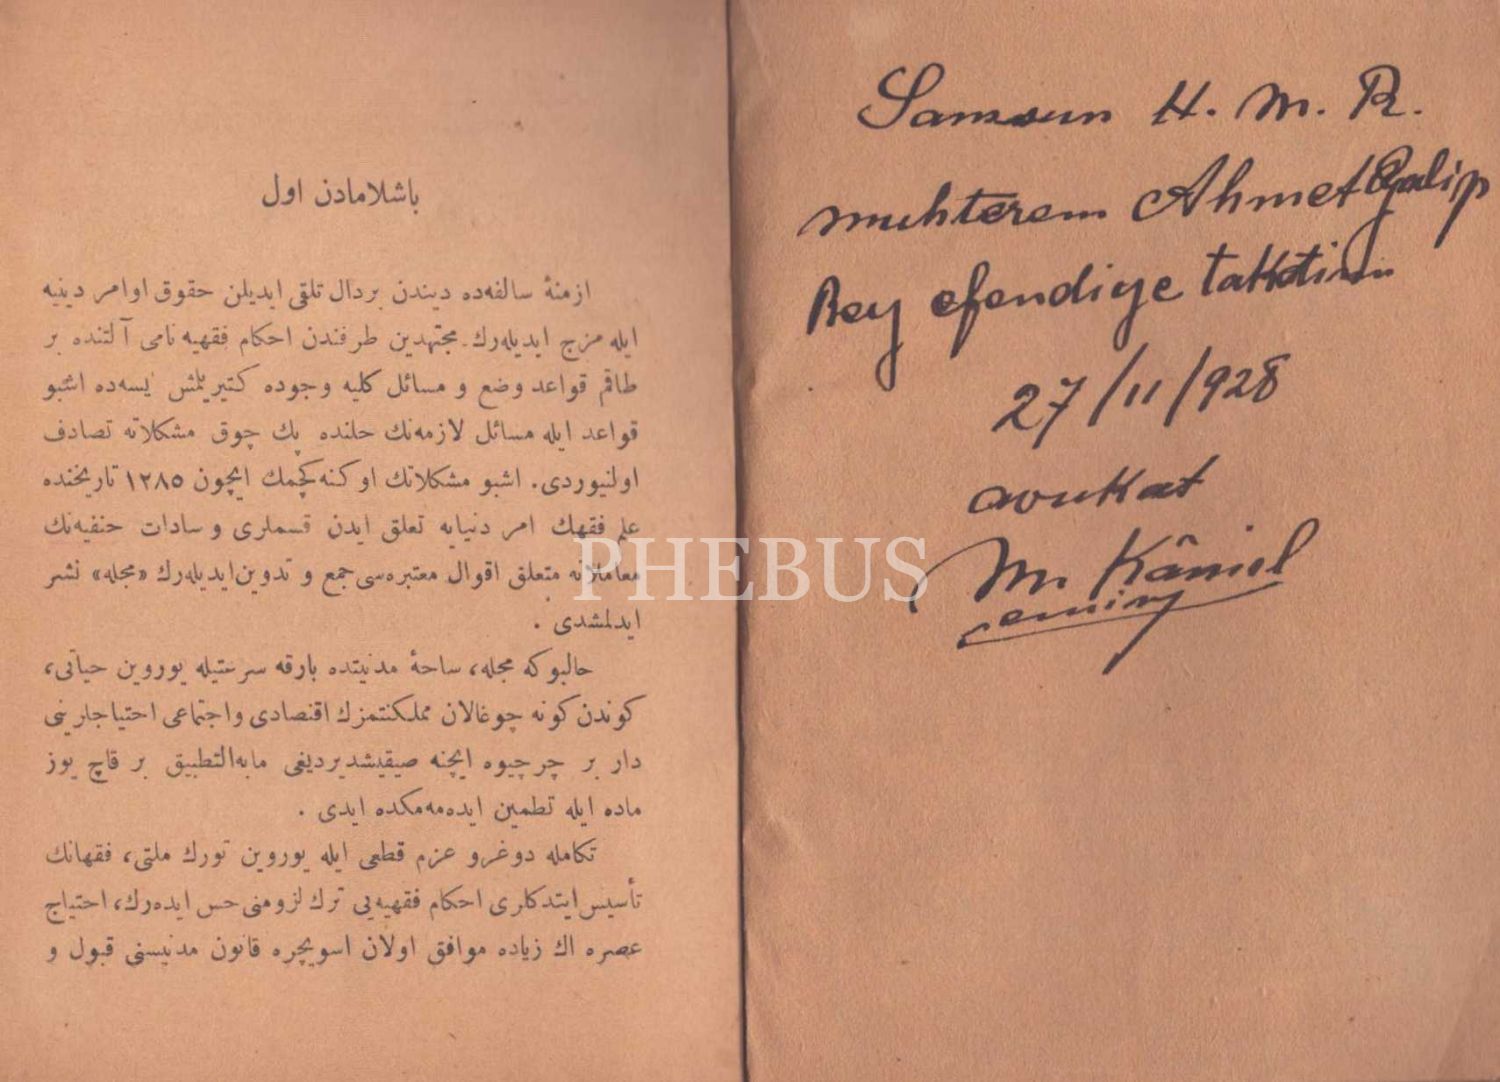 باشلامادن اول
ازمنهٔ سالفه‌ده دیندن بردال تلقی ایدیلن حقوق اوامر دینیه
ایله مزج ایدیله‌رك مجتهدین طرفندن احكام فقهیه نامی آلتنده بر
طاقم قواعد وضع و مسائل كلیه وجوده كتیریلمش ایسه‌ده اشبو
قواعد ایله مسائل لازمه‌نك حلنده پك چوق مشكلاته تصادف
اولنیوردی. اشبو مشكلاتك اوكنه‌كچمك ایچون ١٢٨٥ تاریخنده
علم فقهك امر دنیایه تعلق ایدن قسملری و سادات حنفیه‌نك
معاملاته متعلق اقوال معتبره‌سی جمع و تدوین ایدیله‌رك «مجله» نشر
ایدلمشدی .
حالبوكه مجله، ساحهٔ مدنیتده بارقه سرعتیله یوروین حیاتی،
كوندن كونه چوغالان مملكتمزك اقتصادی واجتماعی احتیاجلرینی
دار بر چرچیوه ایچنه صیقیشدیردیغی مابه‌التطبیق بر قاچ یوز
ماده ایله تطمین ایده‌مه‌مكده ایدی .
تكامله دوغرو عزم قطعی ایله یوروین تورك ملتی، فقهانك
تأسیس ایتدكلری احكام فقهیه‌یی ترك لزومنی حس ایده‌رك، احتیاج
عصره اك زیاده موافق اولان اسویچره قانون مدنیسنی قبول و
Samsun H. M. R.
muhterem Ahmet Galip
Bey efendiye takdtim
27/11/928
avukat
M. Kâmil
PHEBUS